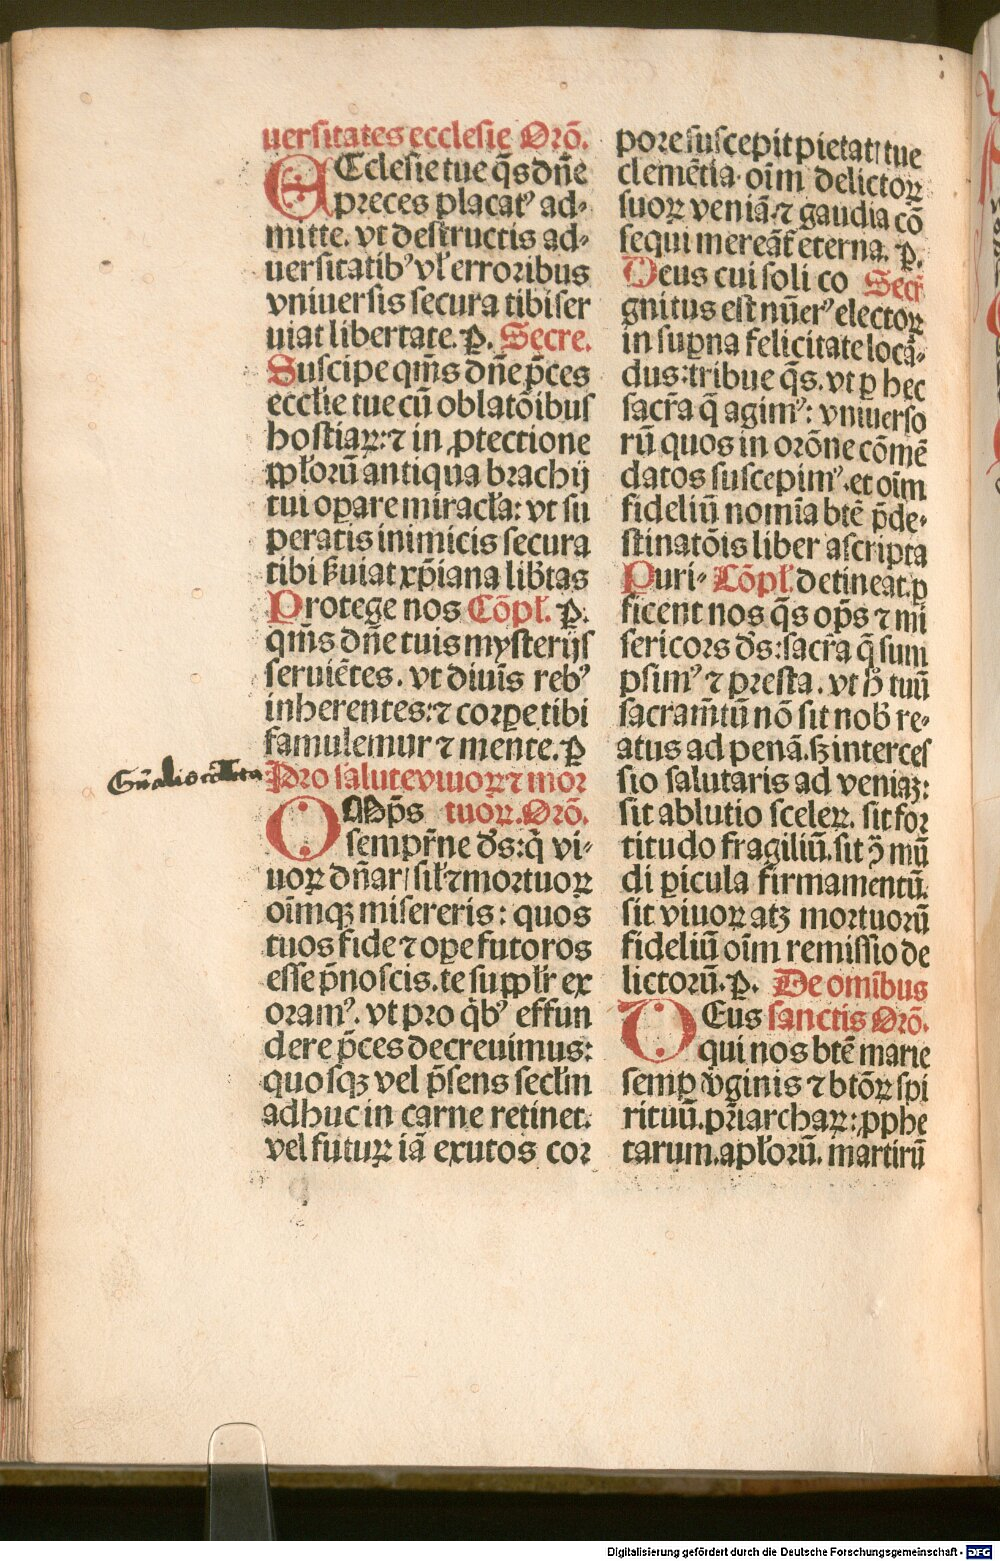 uersitates ecclesie Orō.
ECclesie tue q̄s dn̄e
preces placatꝰ ad⸗
mitte. vt destructis ad⸗
uersitatibꝰ vl̓ erroribus
vniuersis secura tibi ser
uiat libertate. P̱. Secre.
Suscipe qm̄s dn̄e p̄ces
eccl̓ie tue cū oblatōibus
hostiaꝝ: ⁊ in ꝓtectione
ꝓpl̓orū antiqua brachij
tui oꝑare miracl̓a: vt su
peratis inimicis secura
tibi ẞuiat xp̄iana lib̓tas
Protege nos Cōpl̓. P̱.
qm̄s dn̄e tuis mysterijs
seruiētes. vt diuīs rebꝰ
inherentes: ⁊ corꝑe tibi
famulemur ⁊ mente. P̱
Gn̄alis collecta
Pro salute viuoꝝ ⁊ mor
OMp̄s tuoꝝ. Orō.
sempr̄ne ds̄: q̇ vi⸗
uoꝝ dn̄aris sil̓ ⁊ mortuoꝝ
oīmqꝫ misereris: quos
tuos fide ⁊ oꝑe futoros
esse p̄noscis. te suppl̓r ex
oramꝰ. vt pro q̇bꝰ effun
dere p̄ces decreuimus:
quosqꝫ vel p̄sens secl̓m
adhuc in carne retinet.
vel futuꝝ iā exutos cor
pore suscepit pietatis tue
clemētia. oīm delictoꝝ
suoꝝ veniā ⁊ gaudia cō
sequi mereāt̄ eterna. P̱.
Deus cui soli co Secr̄
gnitus est nūerꝰ electoꝝ
in suꝑna felicitate locā⸗
dus: tribue q̄s. vt ꝑ hec
sacr̄a q̄ agimꝰ: vniuerso
rū quos in orōne cōmē
datos suscepimꝰ. et oīm
fideliū nomīa btē p̄de⸗
stinatōis liber ascripta
Puri⸗ Cōpl̓. detineat. ꝑ
ficent nos q̄s op̄s ⁊ mi
sericors ds̄: sacr̄a q̄ sum
psimꝰ ⁊ presta. vt h̓ tuū
sacram̄tū nō sit nob̓ re⸗
atus ad penā. sꝫ interces
sio salutaris ad veniaꝫ:
sit ablutio sceleꝝ. sit for
titudo fragiliū. sit ꝯ̄ mū
di ꝑicula firmamentū.
sit viuoꝝ atꝫ mortuorū
fideliū oīm remissio de
lictorū. P̱. De omībus
DEus sanctis Orō.
qui nos btē marie
semꝑ v̓ginis ⁊ btōꝝ spi
rituū. pr̄iarchaꝝ: ꝓphe
tarum. apl̓orū. martirū
Digitalisierung gefördert durch die Deutsche Forschungsgemeinschaft - DFG